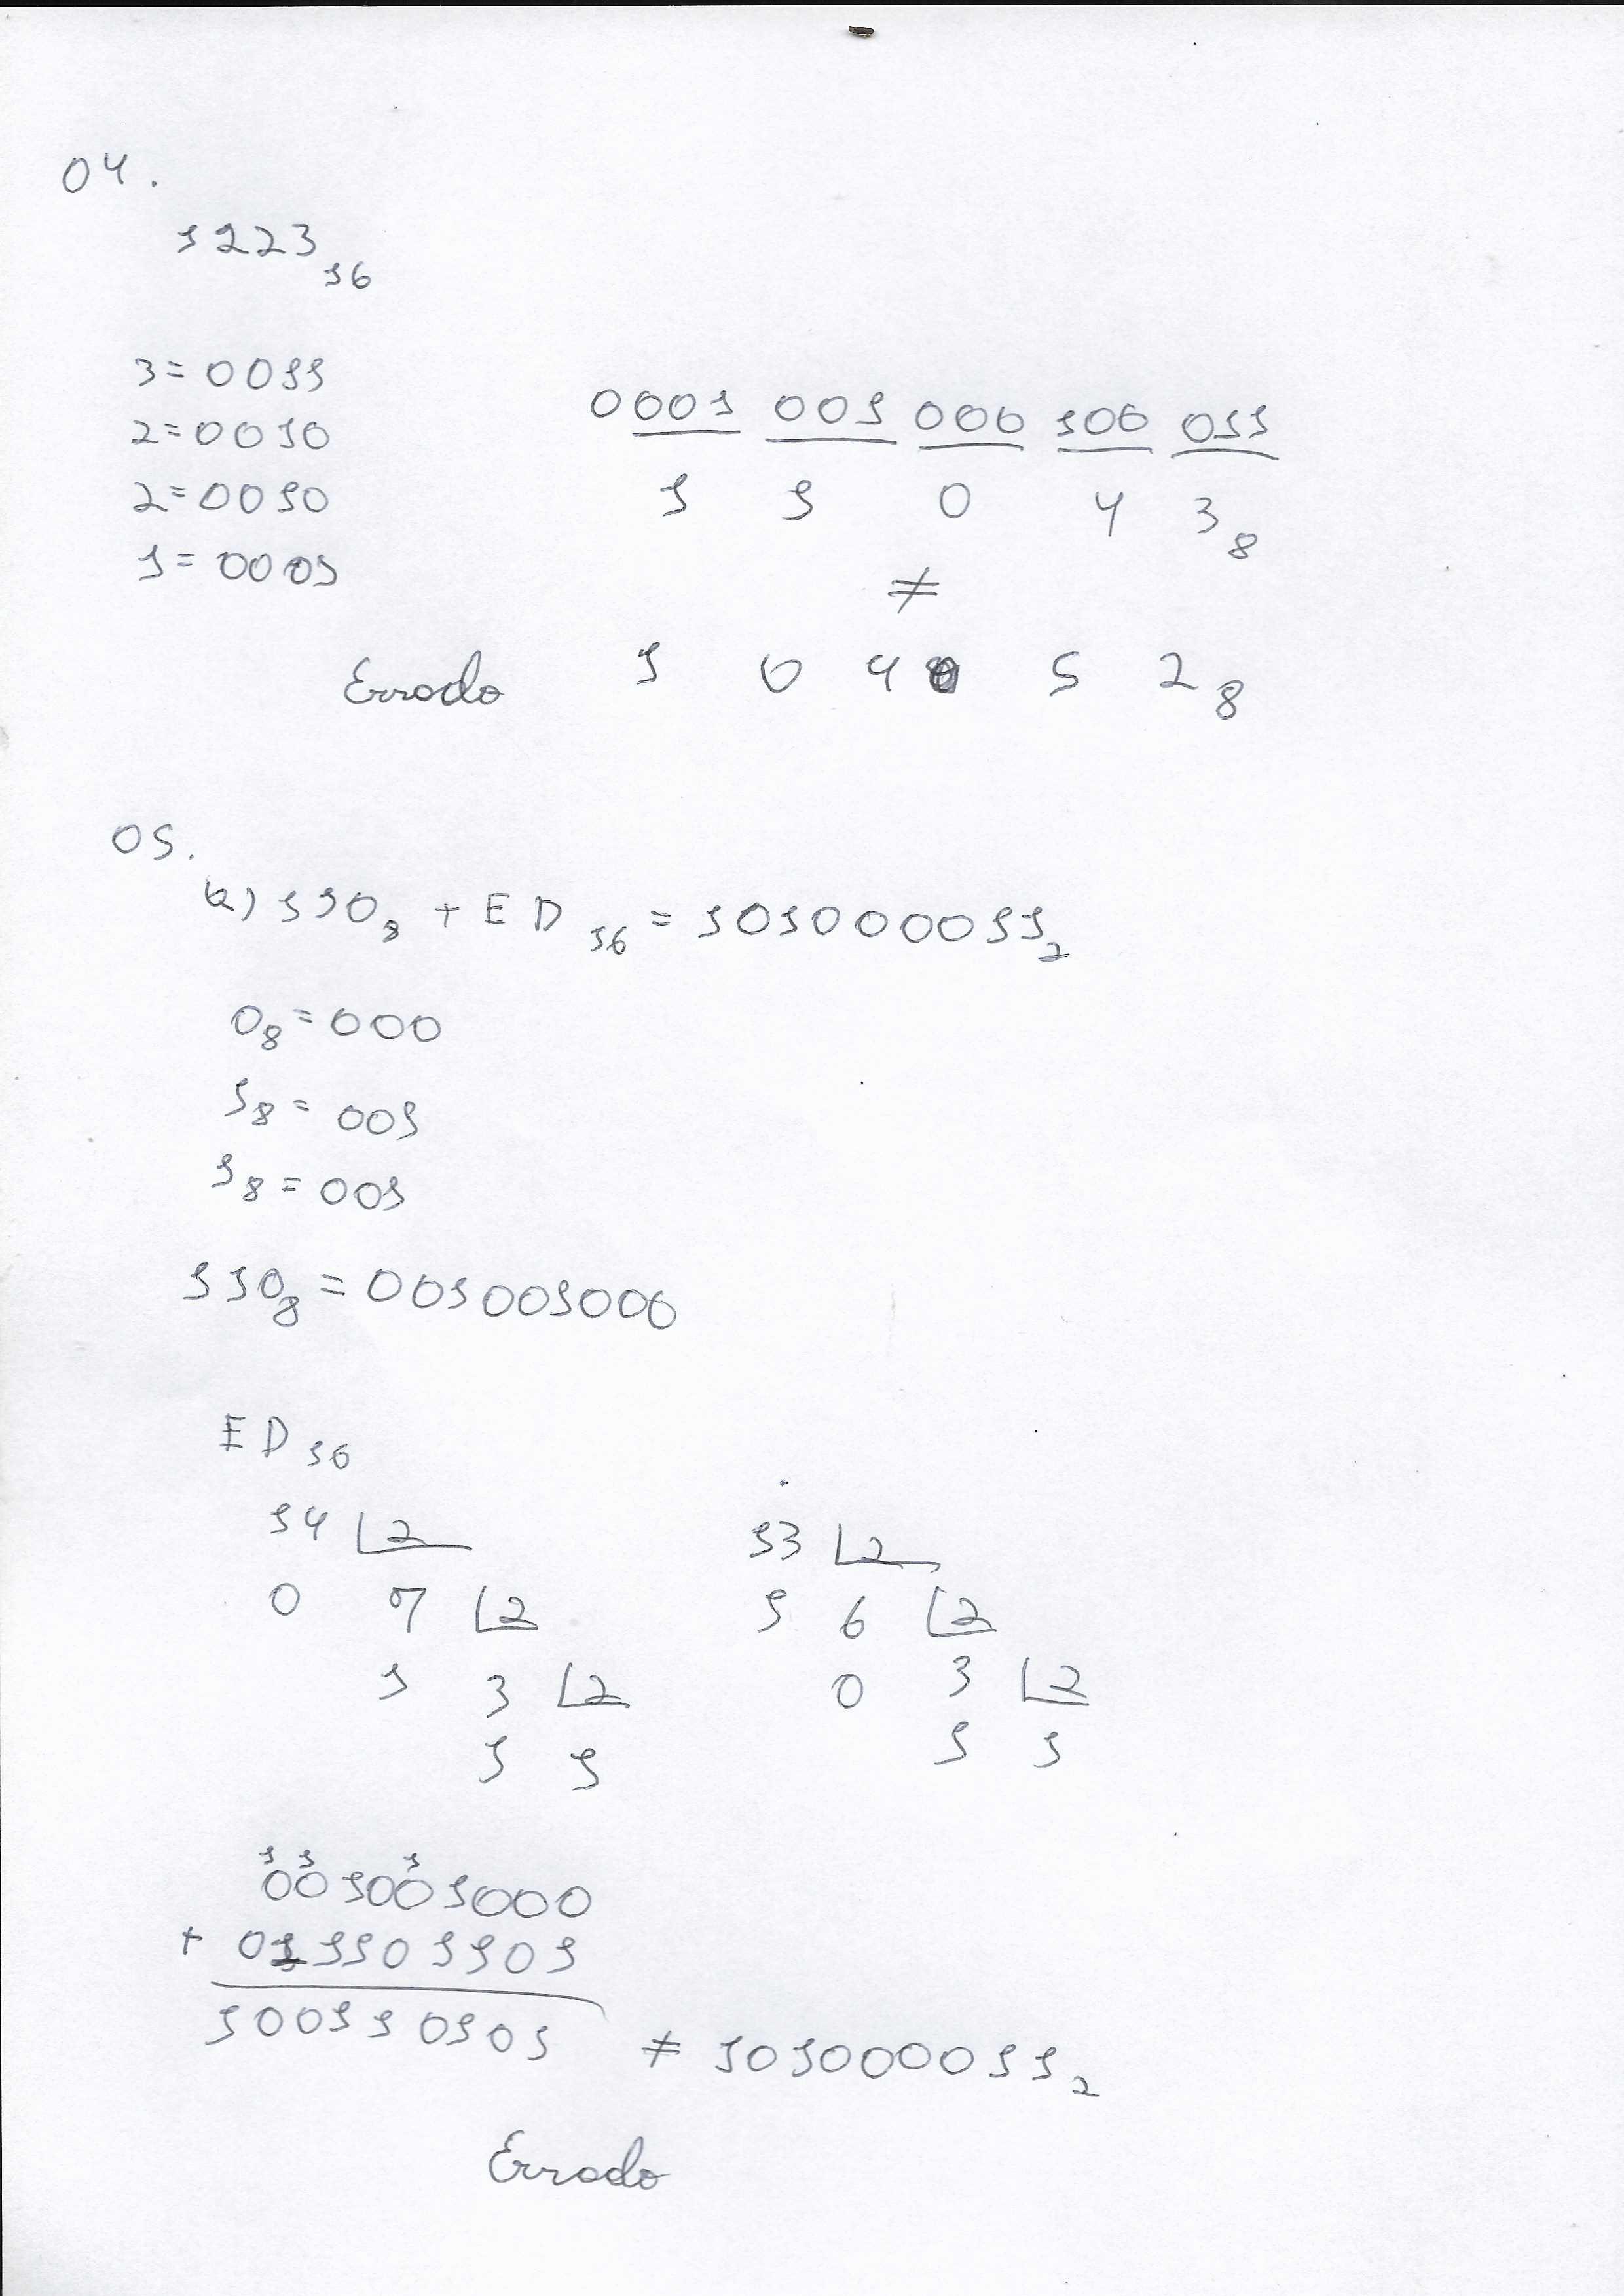 04.
1223 16
3=0011
2=0010
2=0010
1=0001
0001 001 000 100 011
1 1 0 4 3 8
≠
Errado 1 0 4 5 2 8
05.
a) 110 8 + ED 16 = 101000011 2
0 8 = 000
1 8 = 001
1 8 = 001
110 8 = 001001000
ED 16
14 2 13 2
0 7 2 1 6 2
1 3 2 0 3 2
1 1 1 1
1 1 1
001001000
+ 011101101
100110101 ≠ 101000011 2
Errado